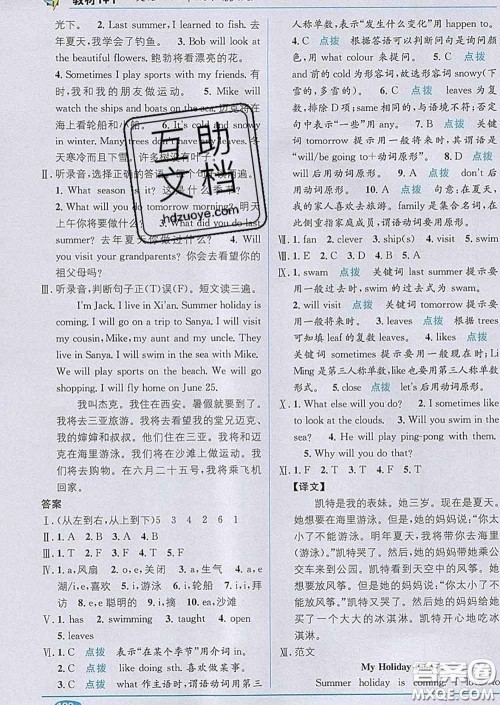 教材1+1
光下。 2. Last summer, I learned to fish.
去年夏天,我学会了钓鱼。 3. Bob will look at
the beautiful flowers. Bob将看漂亮的花。
4. Sometimes I play sports with my friends. 有
时,我和我的朋友做运动。
watch the ships and boats on the sea.
看轮船和小船。 6. It's cold and
天寒冷而且下雪。许多树没有叶子。
Ⅱ. 听录音,选择正确的答语。
1. What season is it?
2. What will you do tomorrow morning? 明天
上午你将要做什么? 3. What did you do last
summer? 去年夏天你做过什么? 4. Will
you visit your grandparents? 你会去看望你的
祖父母吗?
Ⅲ. 听录音,判断句子正(T)误(F)。短文读三遍。
I'm Jack. I live in Xi'an. Summer holiday is
coming. I will go to Sanya. I will visit my
cousin, Mike, my aunt and my uncle. They live
in Sanya. I will swim in the sea with Mike. We
will play sports on the beach. We will go boating
in summer. I will fly home on June 25.
我叫杰克。我住在西安。暑假就要到了。
我将去三亚旅游。我将去看望我的堂兄迈克、
我的婶婶和叔叔。他们住在三亚。我将和迈
克在海里游泳。我们将在沙滩上做运动。
我们将去划船。在六月二十五号,我将乘飞机
回家。
答案
Ⅰ. (从左到右,从上到下)5 3 4 2 6 1
Ⅱ. 1. B 2. A 3. A 4. B
Ⅲ. 1. T 2. F 3. F 4. T
Ⅳ. 1. a,风扇 2. o,e,关闭 3. o,a,船 4. e,
a,海 5. i,游泳 6. i,轮船 7. i,i,拜
访 8. e,e聪明的 9. i,鱼 10. a,e叶子
Ⅴ. 1. has 2. swimming 3. taught 4. open
5. leaves
Ⅵ. 1. C 点拨 表示“在某个季节”用介词 in。
2. C 点拨 like doing sth. 喜欢做某事。
3. C 点拨 what 作主语时,谓语动词用第三
人称单数,“发生什么变化”用 happen。
4. B 点拨 根据答语可以判断句子是询问颜
色,用 what colour 来提问。 5. C 点拨
kind of 后加形容词,故选形容词 snowy(下
雪的,多雪的)。
数,排除 B 项;same 相同的,与语境不符。否定
句中表示“一些”用 any。 7. B 点拨 表示
将要发生的事,用一般将来时,其谓语动词是
“will/be going to+动词原形”。
will 后用动词原形。 9. A 点拨
以……开始。 10. A 点拨 句意:在夏天,我
的家人喜欢去度假。family 是集合名词,在
此侧重指家庭成员,谓语动词要用原形。
Ⅶ. 1. fan 2. clever 3. ship(s) 4. visit 5. open
Ⅷ. 1. C
Ⅸ. 1. swam 点拨 关键词 last summer 提示要
用一般过去时,swim 的过去式为 swam。
2. will 点拨 关键词 tomorrow 提示要
用一般将来时。 3. leaves 点拨 根据 trees
可知应用复数形式。 4. likes 点拨 关键词
sometimes 提示要用一般现在时;Li
Ming 是第三人称单数,like也要用第三人称单数
形式。 5. close 点拨 let's 后用动词原形。
Ⅹ. 1. What else will you do? 2. I sometimes like
to look at boats. 3. What will you do?
4. He will play ping-pong with them.
5. Why will you do that?
Ⅺ. 1. F 2. F 3. T 4. T 5. T
【译文】
凯特是我的表妹。她三岁。现在是夏天。
她想要在海里游泳,但是她的妈妈说:“你太小
了不能游泳。”凯特想要放风筝。她的妈妈带她乘公
交车去公园。凯特看到天空中的风筝。她想要
放风筝,但是她的妈妈说:“你太小了不能放风
筝。”凯特难过了。然后,她的妈妈给她买
了一个大大的冰淇淋。凯特开心地吃冰
淇淋。
Ⅻ. 范文
My Holiday Plan
Summer holiday is coming. I love to
互助文档
hdzuoye.com
答案圈
MXQE.COM